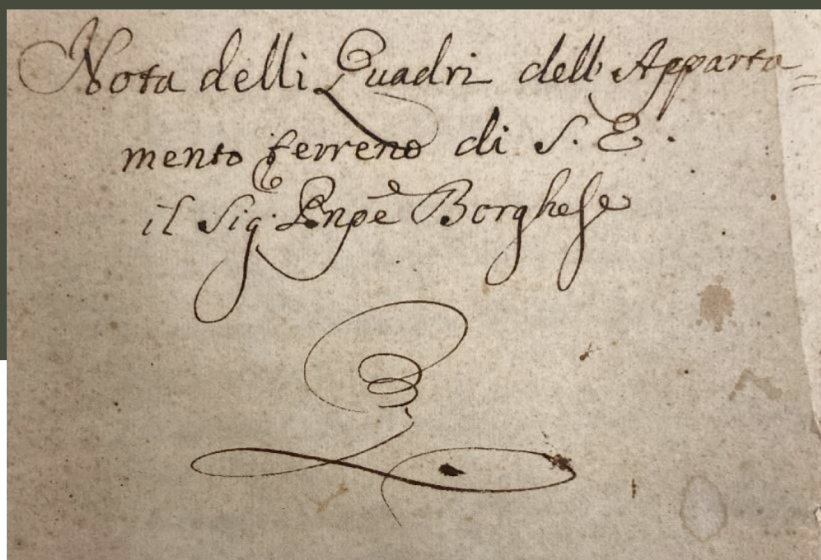 Nota delli Quadri dell'Apparta=
mento terreno di S. E.
il Sig. Pnpe Borghese